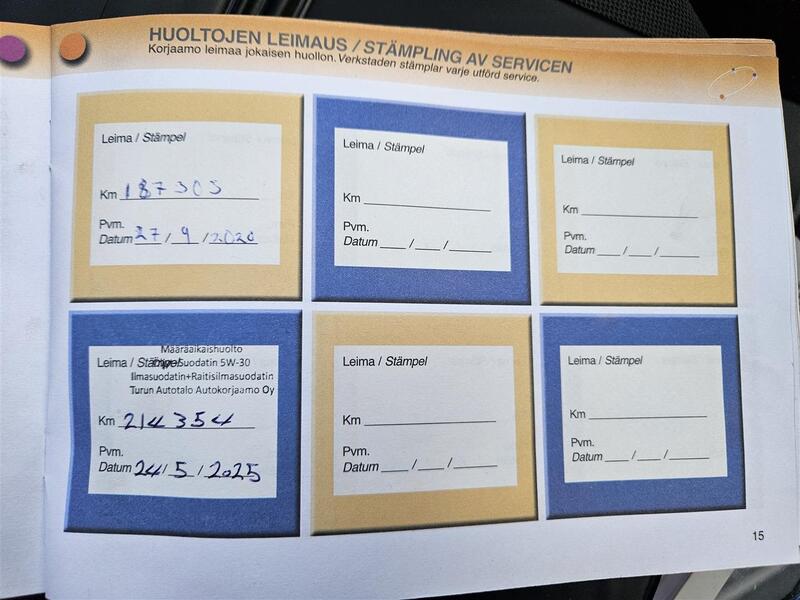 HUOLTOJEN LEIMAUS / STÄMPLING AV SERVICEN
Korjaamo leimaa jokaisen huollon. Verkstaden stämplar varje utförd service.
Leima / Stämpel
Km 187305
Pvm.
Datum 27 / 9 / 2020
Leima / Stämpel
Km
Pvm.
Datum ___ / ___ / ___
Leima / Stämpel
Km
Pvm.
Datum ___ / ___ / ___
Määräaikaishuolto
Leima / Stämpel Suodatin 5W-30
Ilmasuodatin+Raitisilmasuodatin
Turun Autotalo Autokorjaamo Oy
Km 214354
Pvm.
Datum 24 / 5 / 2025
Leima / Stämpel
Km
Pvm.
Datum ___ / ___ / ___
Leima / Stämpel
Km
Pvm.
Datum ___ / ___ / ___
15